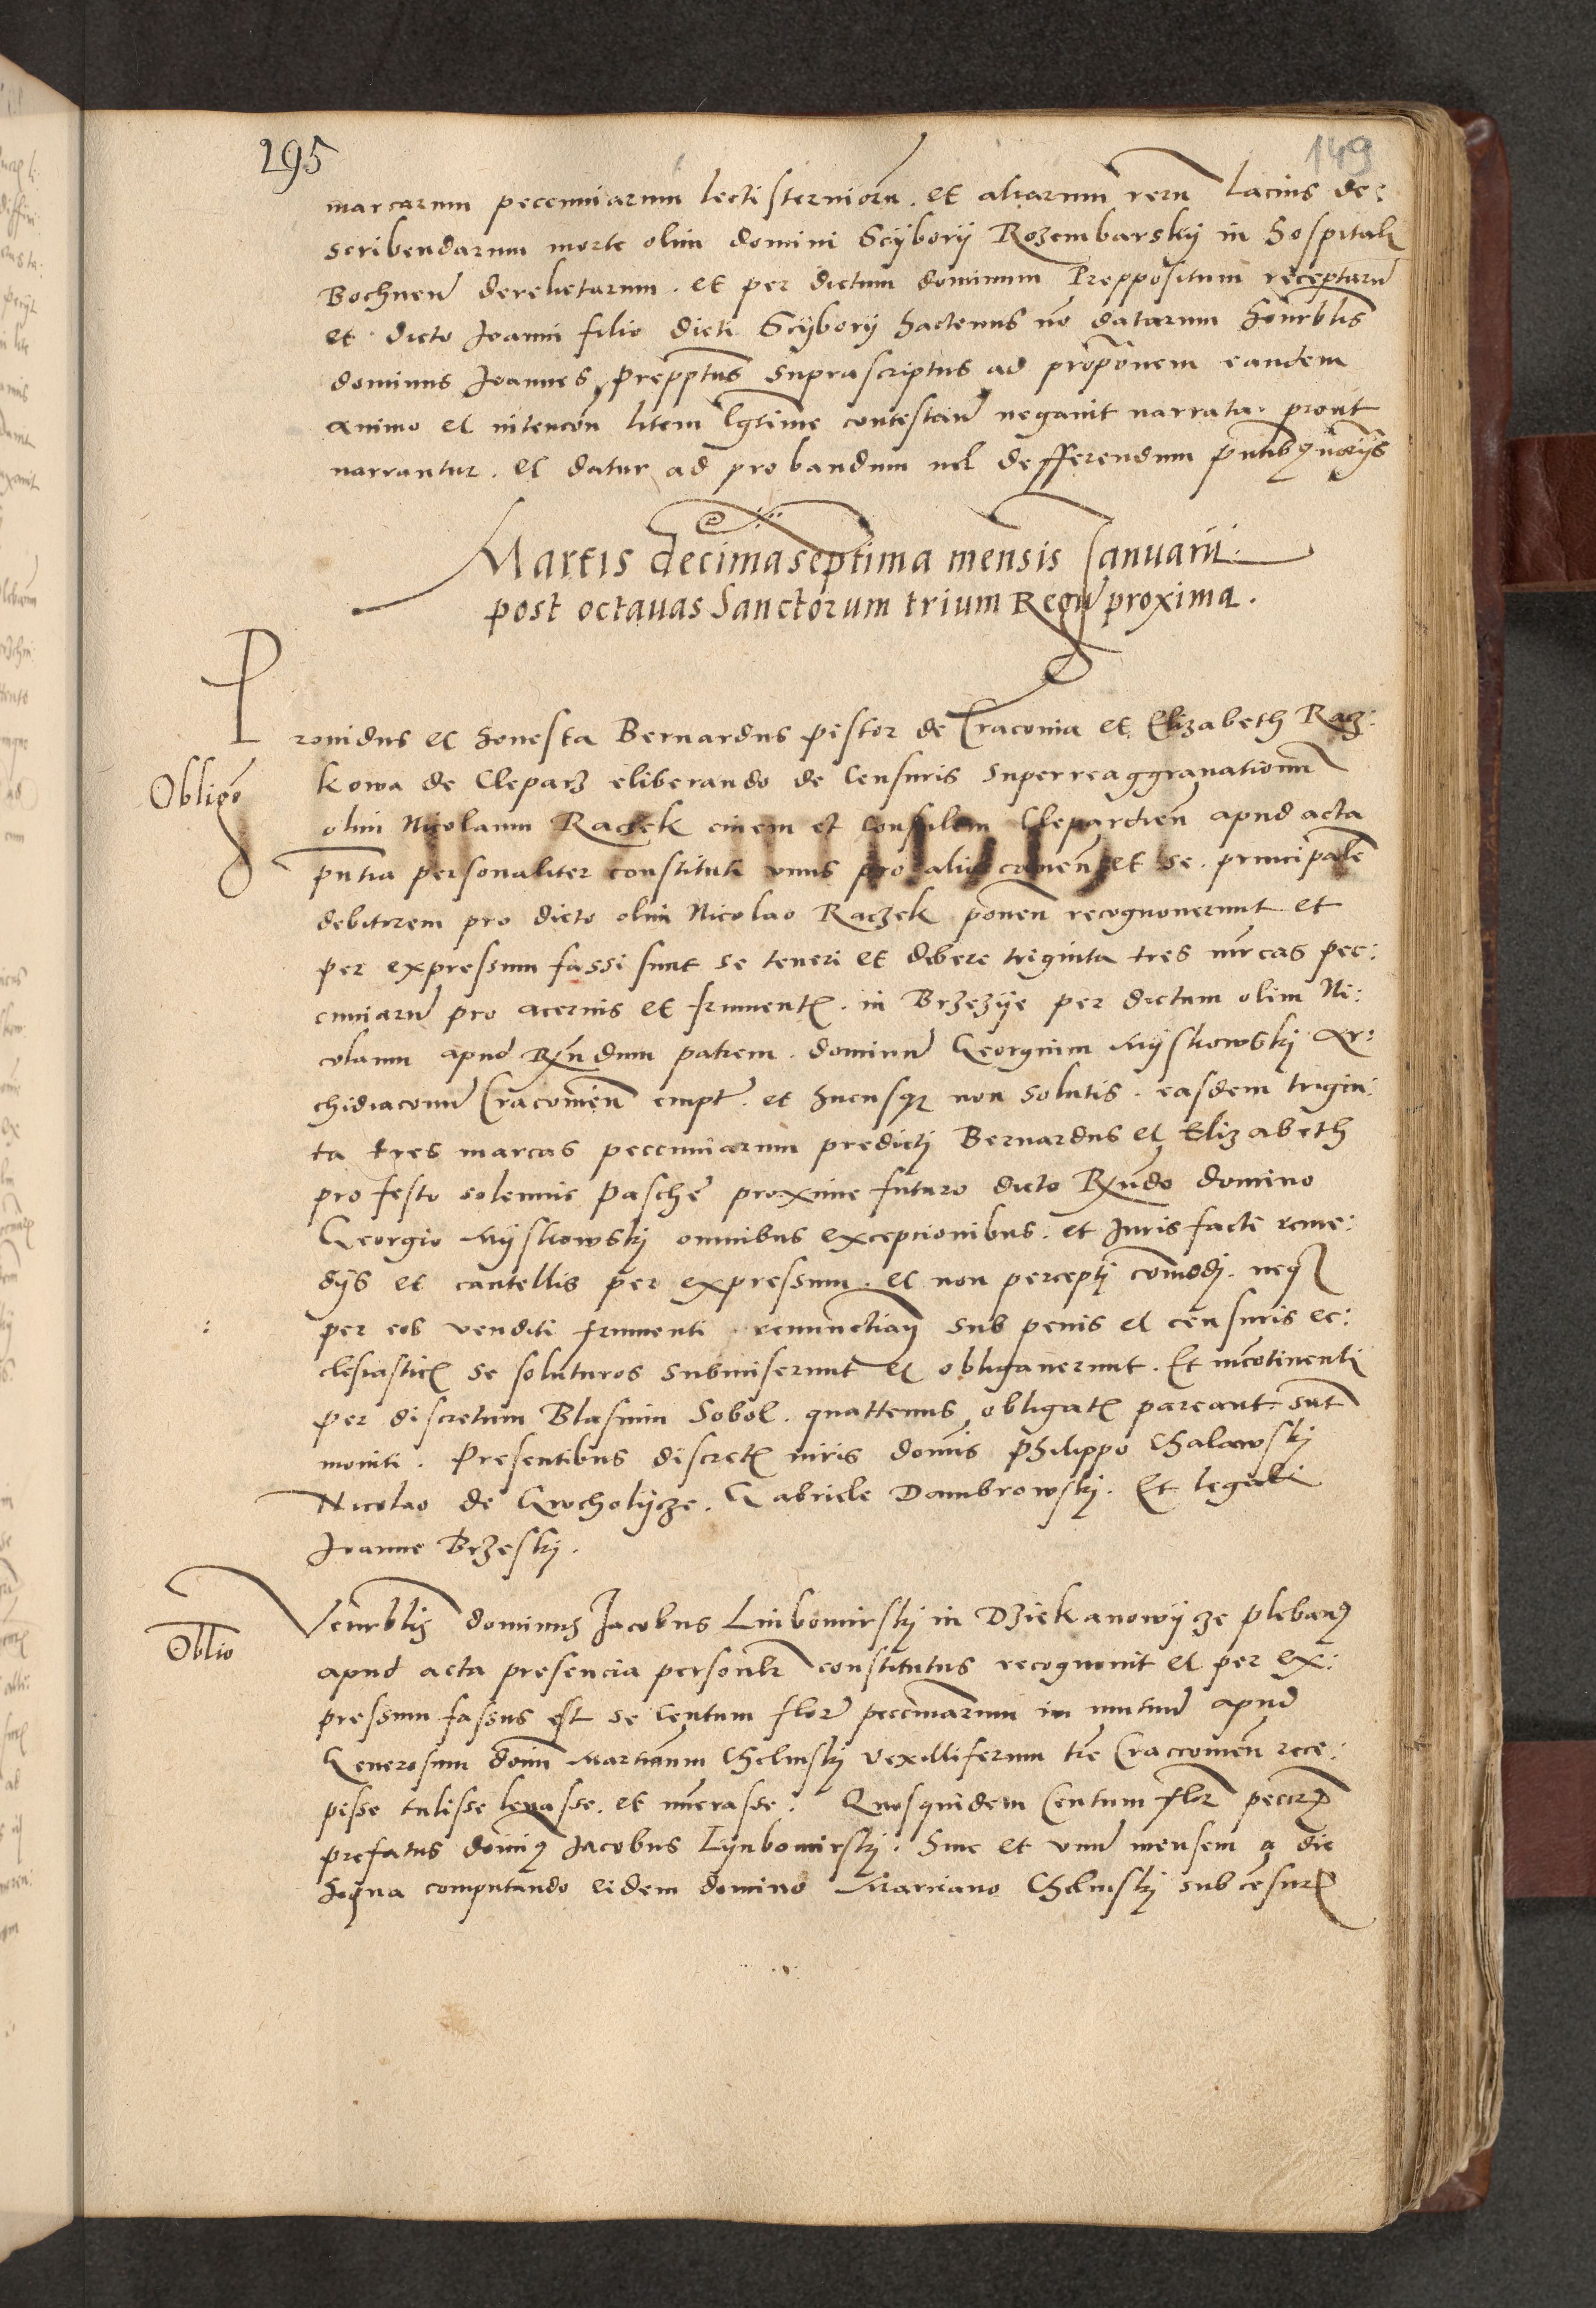 295
149
marcarum pecenniarum lectisterniorũ. et aliarum rerũ Lacius de:
scribendarum morte olim domini Scÿborÿ Rozembarskÿ in Hospitali
Bochneñ derelictarum. et per dictum dominum Preppositum receptarũ
et dicto Joanni filio dicti Scÿborÿ hactenus nõ datarum Honrblis
dominus Joannes prepptus suprascriptus ad proponem eandem
animo et intencon litem lgtime contestañ negauit narrata prout
narrantur. et datur ad probandum uel defferendum
Martis decimaseptima mensis Januarii
post octauas Sanctorum trium Regũ proxima.
Prouidus et honesta Bernardus pistor de Craconia et Elizabeth Racz:
kowa de Cleparz eliberando de Censuris superreaggrauationum
Obligo
olim Nicolaum Raczek ciuem et Consulem Clepardien̄ apud acta
pntia personaliter constituti vnus pro alio et se principalē
debitorem pro dicto olim Nicolao Raczek ponen̄ recognouerunt et
per expressum fassi sunt se teneri et debere triginta tres mrcas pec:
cuniarũ pro aceruis et frumentis in Brzezÿe per dictum olim Ni:
colaum apud Rñdum patrem dominũ Georgium Mÿskowskÿ Ar:
chidiaconũ Craconien̄ empt. et hucusqz non solutis. easdem trigin:
ta tres marcas peccuniarum predicti Bernardus et Elizabeth
pro festo solennis Paschē proxime futuro dicto Rñdo domino
Georgio Mÿskowskÿ omnibus exceptionibus. et Juris facti reme:
dÿs et cautellis per expressum. et non percepti comodi. neqz
per eos venditi frumenti renunctian̄ sub penis et censuris ec:
clesiasticis se soluturos submiserunt et obligauerunt. Et incotinenti
per discretum Blasium Sobol. quattenus obligatis pareant sunt
moniti. Presentibus discretis uiris domis Philippo Chalawskÿ
Nicolao de Grocholÿcze. Gabriele Dambrowskÿ. Et legali
Joanne Brzeskÿ.
Oblio
Venrblis dominus Jacobus Liubomirskÿ in Dziekanowÿcze plebanus
apud acta presencia personlr constitutus recognouit et per ex:
pressum fassus est se Centum flor peccuniarum in mutuũ apud
Generosum dom̄ Martianum Chelmskÿ vexilliferum trē Cracouien̄ rece:
pisse tulisse leuasse. et nūerasse. Quosquidem Centum flor peccr
prefatus domiṇ Jacobus Lyubomirskÿ. hinc et vnũ mensem a die
hodierna computando eidem domino Marciano Chelmskÿ sub cēsuris